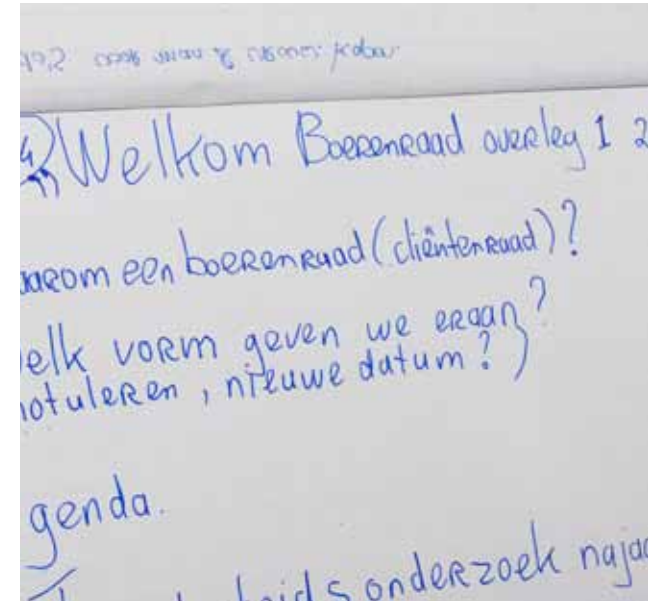 Welkom Boerenraad overleg 1 2
arom een boerenraad (cliëntenraad)?
elk vorm geven we eraan?
notuleren, nieuwe datum?)
genda.
heidsonderzoek najaa